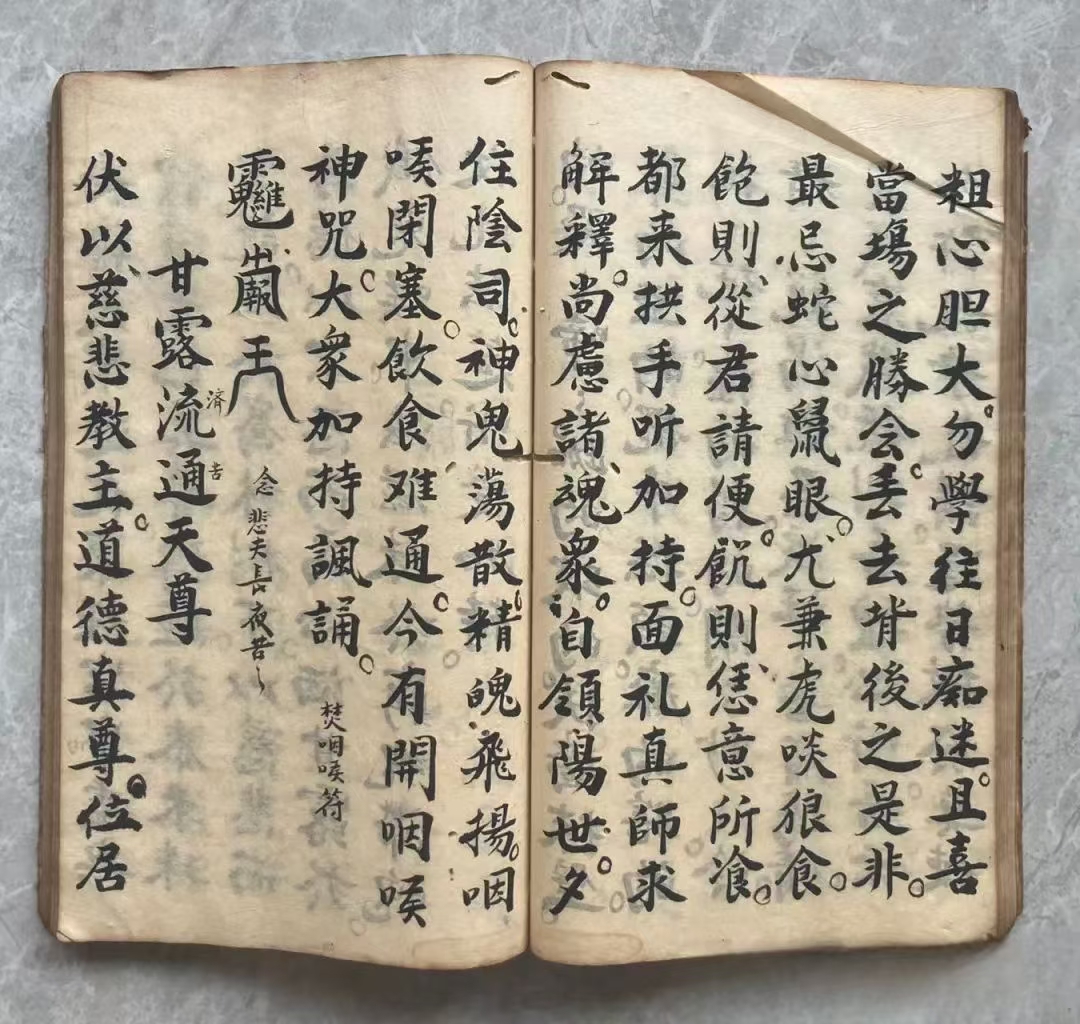 粗心胆大勿學往日痴迷且喜
當塲之勝会丢去背後之是非
最忌蛇心鼠眼尤兼虎啖狼食
飽則從君請便飢則恁意所飡
都来拱手听加持面礼真師求
解釋尚慮諸魂衆自領陽世夕
住陰司神鬼蕩散精魄飛揚咽
㗋閉塞飲食难通今有開咽㗋
神咒大衆加持諷誦
焚咽㗋符
王
念悲夫長夜苦〻
甘露流通天尊
濟
吉
伏以慈悲教主道德真尊位居